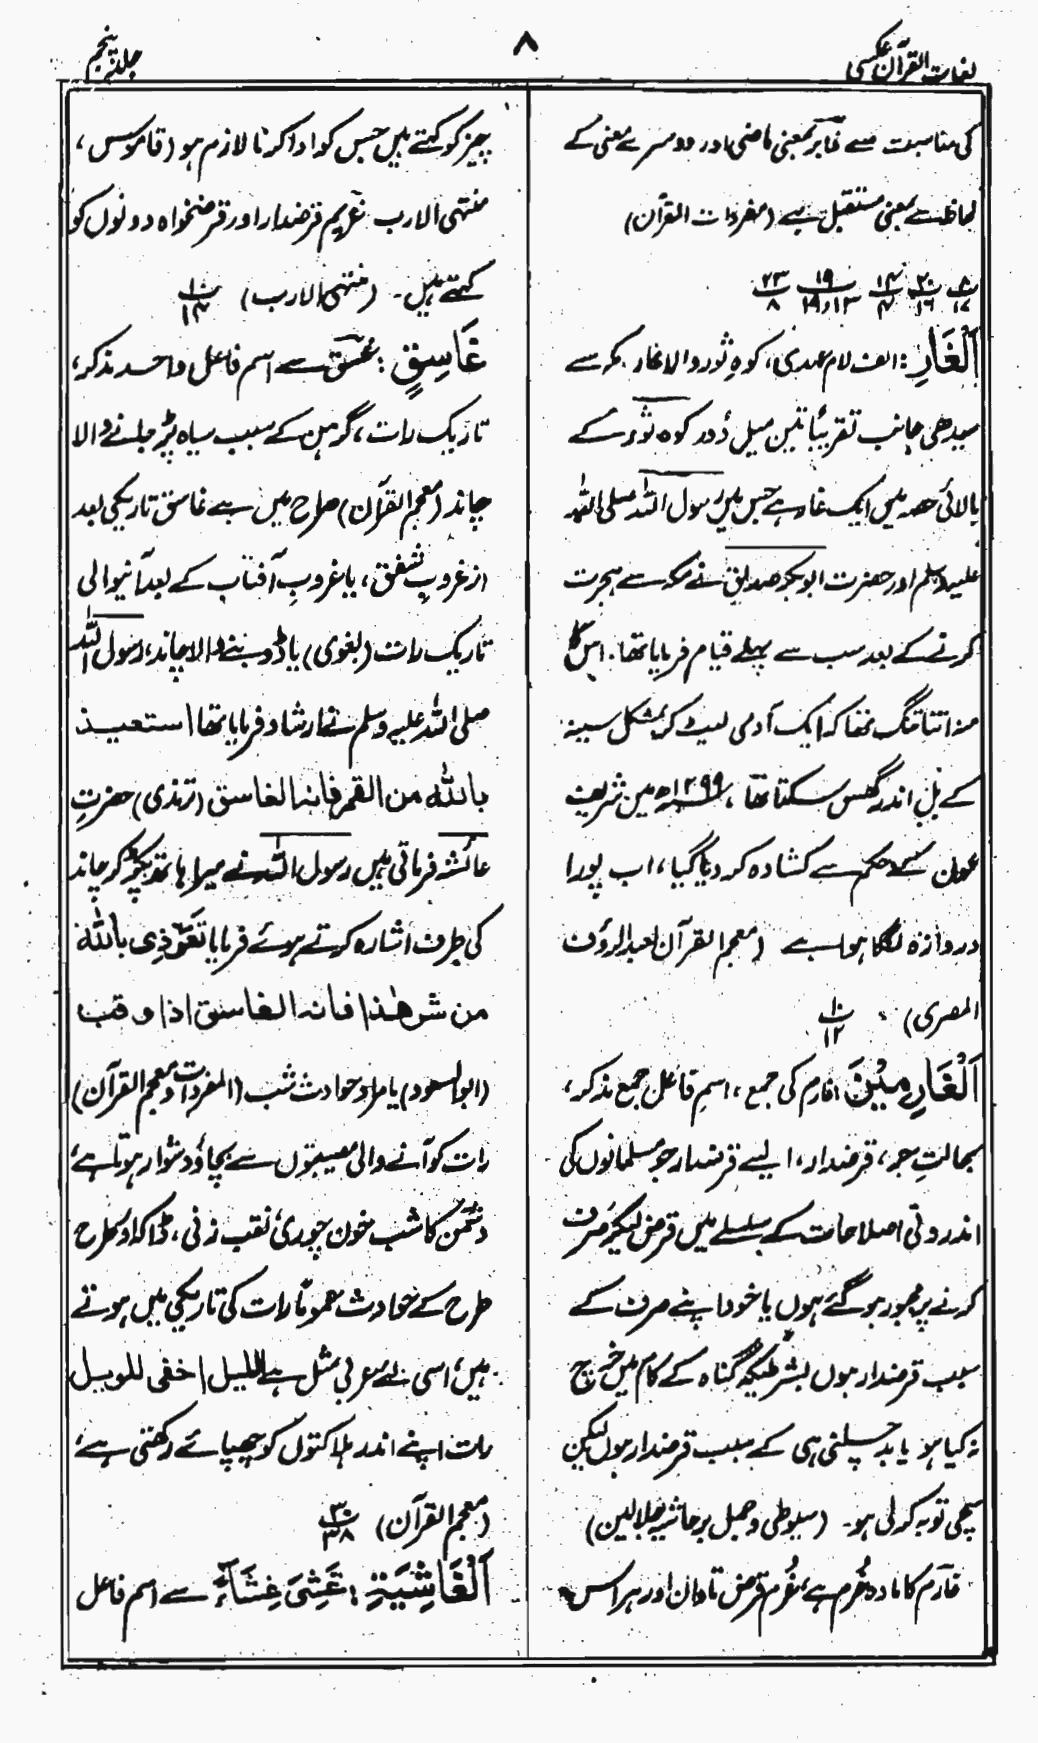 لغات القرآن عکسی
۸
جلد پنجم
کی مناسبت سے غابر بمعنی ماضی اور دوسرے معنی کے
لحاظ سے بمعنی مستقبل ہے (مفردات القرآن)
۸/۱۷ ۲۰/۱۶ ۱۴/۴ ۱۹/۱۹،۱۳ ۲۳/۸
اَلْغَارِ: الف لام عہدی، کوہِ ثور والا غار مکہ سے
سیدھی جانب تقریباً تین میل دُور کوہ ثور کے
بالائی حصہ میں ایک غار ہے جس میں رسول اللہ صلی اللہ
علیہ وسلم اور حضرت ابوبکر صدیق نے مکہ سے ہجرت
کرنے کے بعد سب سے پہلے قیام فرمایا تھا. اس کا
منہ اتنا تنگ تھا کہ ایک آدمی لیٹ کر بمشکل سینہ
کے بل اندر گھس سکتا تھا، ۱۲۹۹ھ میں شریف
عون کے حکم سے کشادہ کر دیا گیا، اب پورا
دروازہ لگا ہوا ہے (معجم القرآن لعبد الرؤف
المصری) ۱۰/۱۲
اَلْغَارِمِیْنَ غارم کی جمع، اسمِ فاعل جمع مذکر،
بحالتِ جر، قرضدار، ایسے قرضدار جو مسلمانوں کی
اندرونی اصلاحات کے سلسلے میں قرض لیکر صرف
کرنے پر مجبور ہو گئے ہوں یا خود اپنے صرف کے
سبب قرضدار ہوں بشرطیکہ گناہ کے کام میں خرچ
نہ کیا ہو یا بد چلنی ہی کے سبب قرضدار ہوں لیکن
سچی توبہ کر لی ہو۔ (سیوطی و جمل بر حاشیہ جلالین)
غارم کا مادہ غُرم ہے، غُرم قرض تاوان اور ہر اس
چیز کو کہتے ہیں جس کو ادا کرنا لازم ہو (قاموس،
منتہی الارب غریم قرضدار اور قرضخواہ دونوں کو
کہتے ہیں۔ (منتہی الارب) ۱۰/۱۴
غَاسِقٍ: غسق سے اسم فاعل واحد مذکر،
تاریک رات، گرہن کے سبب سیاہ پڑ جانے والا
چاند (معجم القرآن) صراح میں ہے غاسق تاریکی بعد
از غروبِ شفق، یا غروبِ آفتاب کے بعد آنیوالی
تاریک رات (بغوی) یا ڈوبنے والا چاند، رسول اللہ
صلی اللہ علیہ وسلم نے ارشاد فرمایا تھا استعیذ
باللہ من القمر فانہ الغاسق (ترمذی) حضرتِ
عائشہ فرماتی ہیں رسول اللہ نے میرا ہاتھ پکڑ کر چاند
کی طرف اشارہ کرتے ہوئے فرمایا تَعَوَّذِی باللہ
من شر ھٰذا فانہ الغاسق اذا وقب
(ابو السعود) یا مراد حوادث شب (المفردات و معجم القرآن)
رات کو آنے والی مصیبتوں سے بچاؤ دشوار ہوتا ہے،
دشمن کا شب خون چوری، نقب زنی، ڈاکا اور طرح
طرح کے حوادث عموماً رات کی تاریکی میں ہوتے
ہیں، اسی لئے عربی مثل ہے اللیل اخفی للویل
رات اپنے اندر ہلاکتوں کو چھپائے رکھتی ہے،
(معجم القرآن) ۳۰/۳۸
اَلْغَاشِیَةِ: غَشِیَ غِشَاءٌ سے اسم فاعل